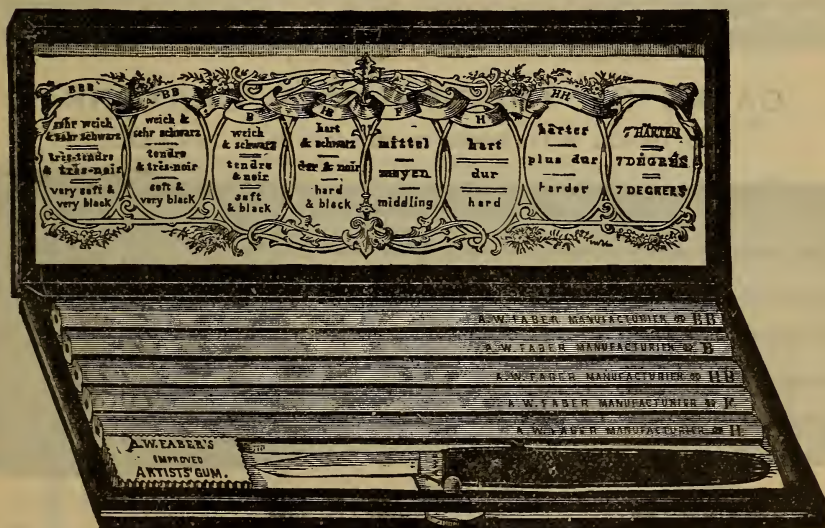 BBB
sehr weich
& sehr schwarz
très-tendre
& très-noir
very soft &
very black
BB
weich &
sehr schwarz
tendre
& très-noir
soft &
very black
B
weich
& schwarz
tendre
& noir
soft
& black
HB
hart
& schwarz
dur & noir
hard
& black
F
mittel
moyen
middling
H
hart
dur
hard
HH
härter
plus dur
harder
7 HÄRTEN
7 DEGRÉS
7 DEGREES
A.W. FABER MANUFACTURIER BB
A.W. FABER MANUFACTURIER B
A.W. FABER MANUFACTURIER HB
A.W. FABER MANUFACTURIER F
A.W. FABER MANUFACTURIER H
A.W. FABER'S
IMPROVED
ARTISTS' GUM.